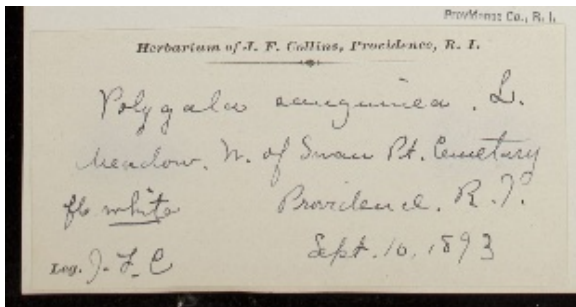 Providence Co., R. I.
Herbarium of J. F. Collins, Providence, R. I.
Polygala sanguinea. L.
Meadow. N. of Swan Pt. Cemetary
fls white Providence. R. I.
Sept. 10, 1893
Leg. J. F. C